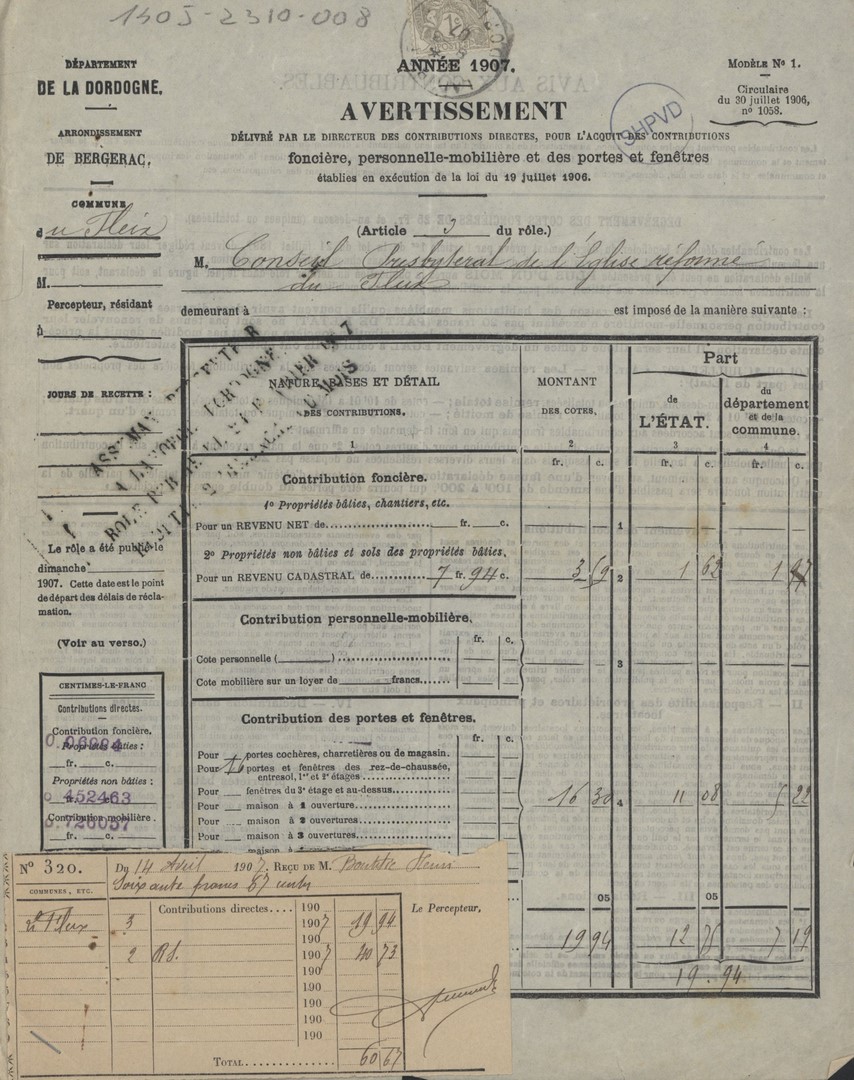 1305-2310-008
DÉPARTEMENT
DE LA DORDOGNE.
ARRONDISSEMENT
DE BERGERAC.
COMMUNE
du Fleix
M.
Percepteur, résidant
à
JOURS DE RECETTE :
Le rôle a été publié le
dimanche
1907. Cette date est le point
de départ des délais de récla-
mation.
(Voir au verso.)
CENTIMES-LE-FRANC
Contributions directes.
Contribution foncière.
Propriétés bâties :
fr. c.
Propriétés non bâties :
0.452463
fr. c.
Contribution mobilière.
fr. c.
ANNÉE 1907.
AVERTISSEMENT
DÉLIVRÉ PAR LE DIRECTEUR DES CONTRIBUTIONS DIRECTES, POUR L'ACQUIT DES CONTRIBUTIONS
foncière, personnelle-mobilière et des portes et fenêtres
établies en exécution de la loi du 19 juillet 1906.
MODÈLE No 1.
Circulaire
du 30 juillet 1906,
no 1058.
SHPVD
(Article 3 du rôle.)
M. Conseil Presbyteral de l'Église réformé
du Fleix
demeurant à est imposé de la manière suivante :
NATURE, BASES ET DÉTAIL
DES CONTRIBUTIONS.
1
MONTANT
DES COTES.
2
Part
de
L'ÉTAT.
3
du
département
et de la
commune.
4
fr. c. fr. c. fr. c.
Contribution foncière.
1o Propriétés bâties, chantiers, etc.
Pour un REVENU NET de fr. c. 1
2o Propriétés non bâties et sols des propriétés bâties.
Pour un REVENU CADASTRAL de 7 fr. 94 c. 3 59 2 1 62 1 97
Contribution personnelle-mobilière.
fr. c.
Cote personnelle ( ) 3
Cote mobilière sur un loyer de francs
Contribution des portes et fenêtres.
fr. c.
Pour portes cochères, charretières ou de magasin.
Pour 16 portes et fenêtres des rez-de-chaussée,
entresol, 1er et 2e étages
Pour fenêtres du 3e étage et au-dessus
Pour maison à 1 ouverture 16 30 4 11 08 5 22
Pour maison à 2 ouvertures
Pour maison à 3 ouvertures
05 05
19 94 12 75 7 19
19.94
No 320. Du 14 Avril 1907. REÇU DE M. Henri
Soixante francs 67 cents
COMMUNES, ETC.
Contributions directes 190
Le Percepteur,
Le Fleix 3 1907 19 94
190
2 Rd. 1907 40 73
190
190
190
190
TOTAL 60 67